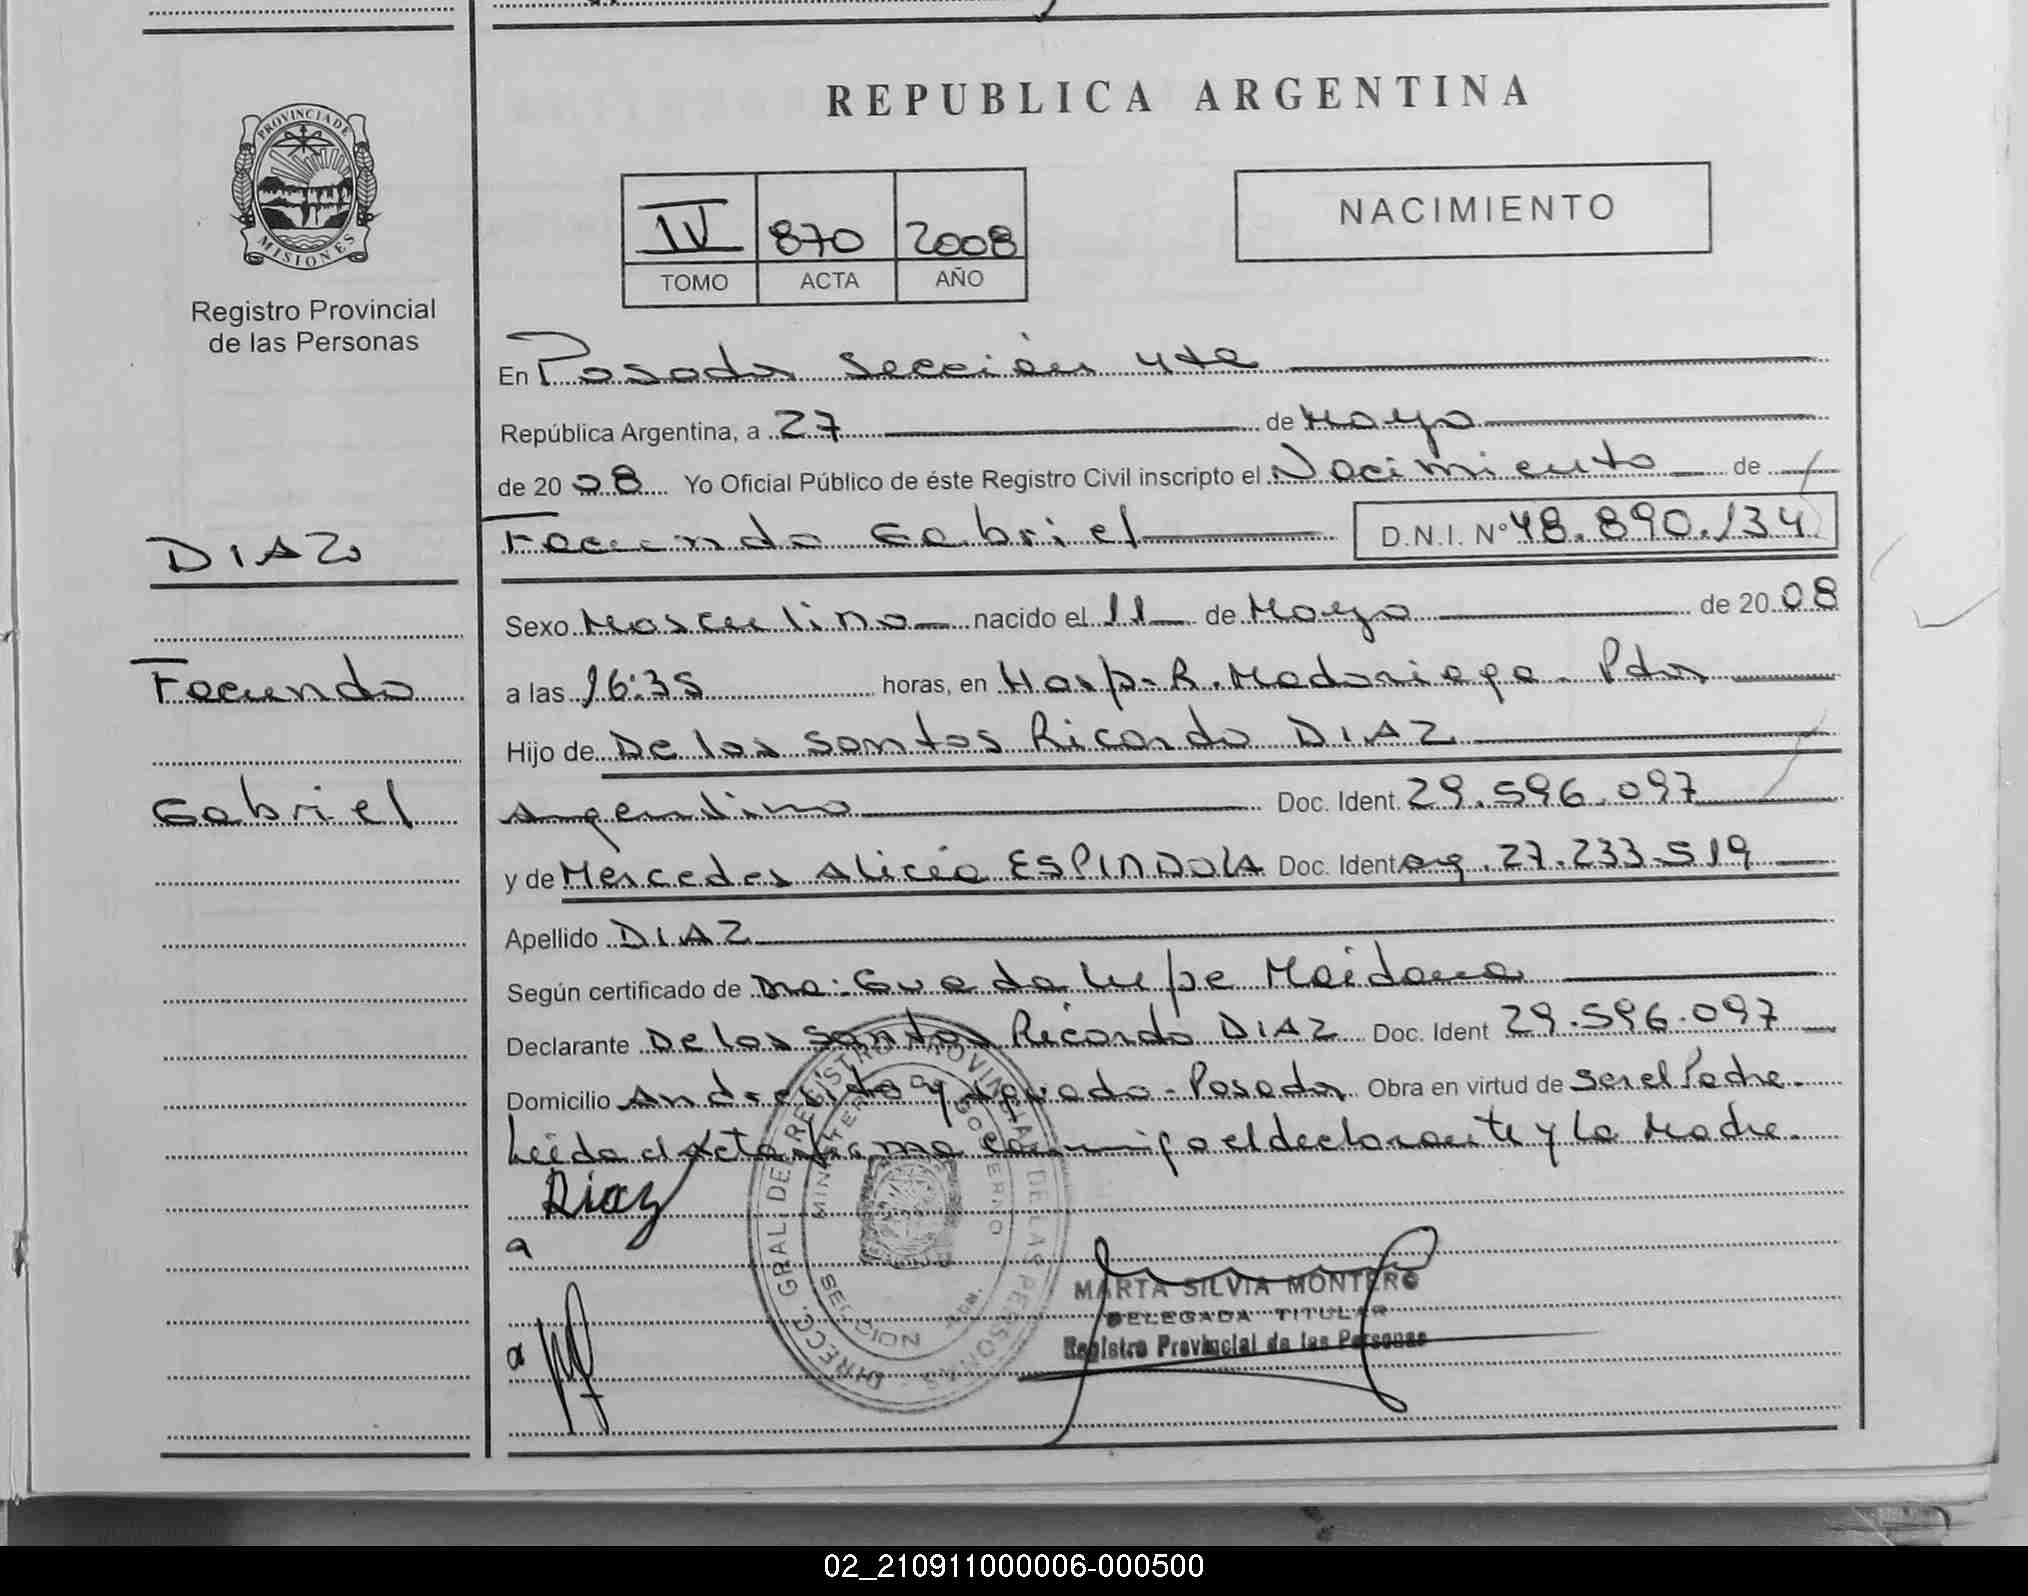 REPUBLICA ARGENTINA
PROVINCIA DE
MISIONES
Registro Provincial
de las Personas
IV 870 2008
TOMO ACTA AÑO
NACIMIENTO
En Posadas Sección 4ta
República Argentina, a 27 de Mayo
de 2008 Yo Oficial Público de éste Registro Civil inscripto el Nacimiento de
DIAZ
Facundo Gabriel D.N.I. Nº 48.890.134
Sexo Masculino nacido el 11 de Mayo de 2008
Facundo
a las 16:35 horas, en Hosp. R. Madariaga - Pdas
Hijo de De los Santos Ricardo DIAZ
Gabriel
Argentino Doc. Ident. 29.596.097
y de Mercedes Alicia ESPINDOLA Doc. Ident arg. 27.233.519
Apellido DIAZ
Según certificado de Dra. Guadalupe Maidana
Declarante De los Santos Ricardo DIAZ Doc. Ident 29.596.097
Domicilio Andresito y - Posadas Obra en virtud de ser el Padre.
Leída el Acta firma conmigo el declarante y la Madre.
Diaz
a
a
DIRECC. GRAL. DEL REGISTRO PROVINCIAL DE LAS PERSONAS
MINISTERIO DE GOBIERNO
SECCION
MARTA SILVIA MONTERO
DELEGADA TITULAR
Registro Provincial de las Personas
02_210911000006-000500